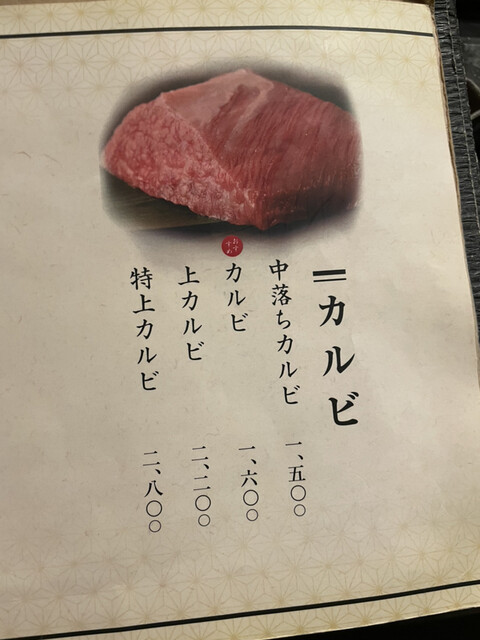 カルビ
中落ちカルビ 一、五〇〇
おすすめ
カルビ 一、六〇〇
上カルビ 二、二〇〇
特上カルビ 二、八〇〇